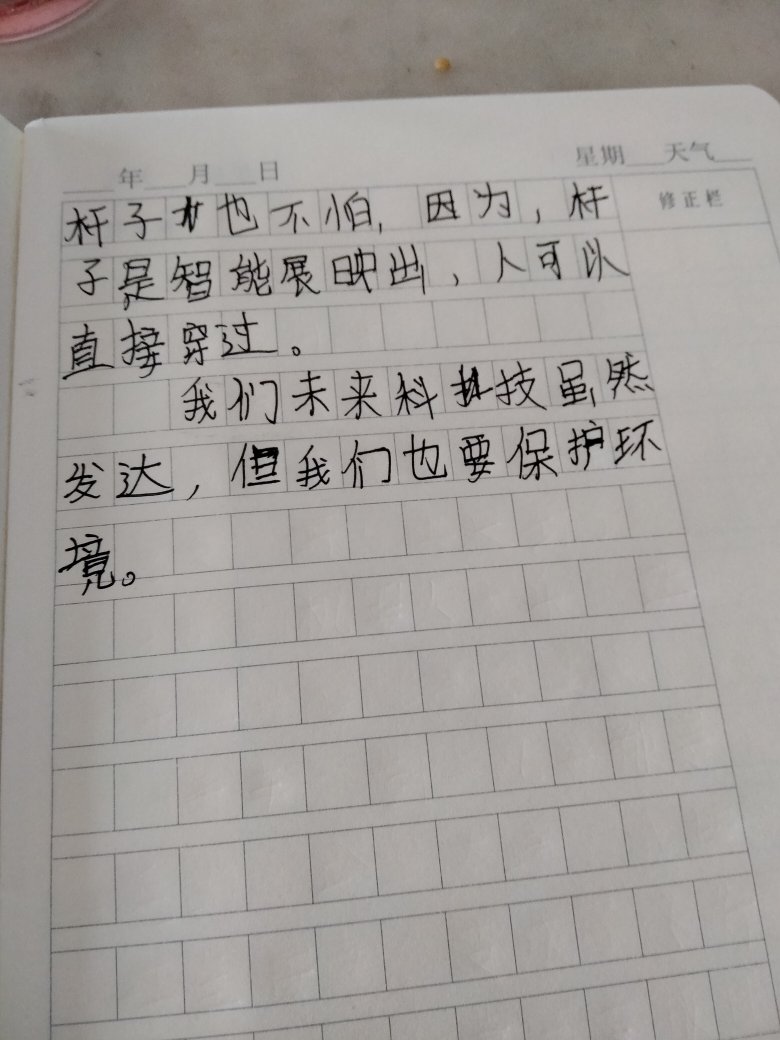 年 月 日 星期 天气
修正栏
杆子也不怕,因为,杆
子是智能展映出,人可以
直接穿过。
我们未来科技虽然
发达,但我们也要保护环
境。